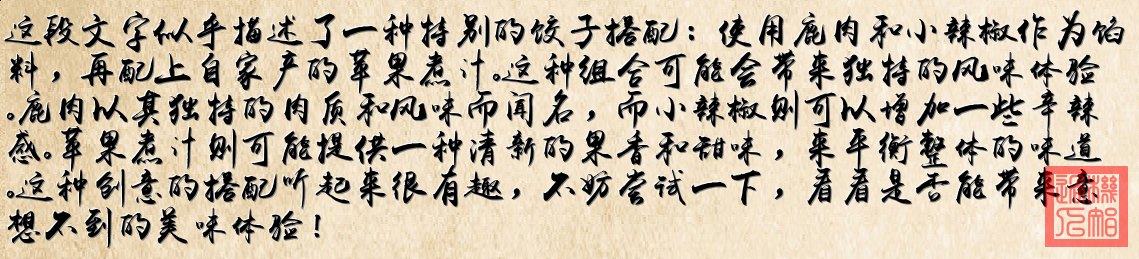 这段文字似乎描述了一种特别的饺子搭配：使用鹿肉和小辣椒作为馅
料，再配上自家产的苹果煮汁。这种组合可能会带来独特的风味体验
。鹿肉以其独特的肉质和风味而闻名，而小辣椒则可以增加一些辛辣
感。苹果煮汁则可能提供一种清新的果香和甜味，来平衡整体的味道
。这种创意的搭配听起来很有趣，不妨尝试一下，看看是否能带来意
想不到的美味体验！